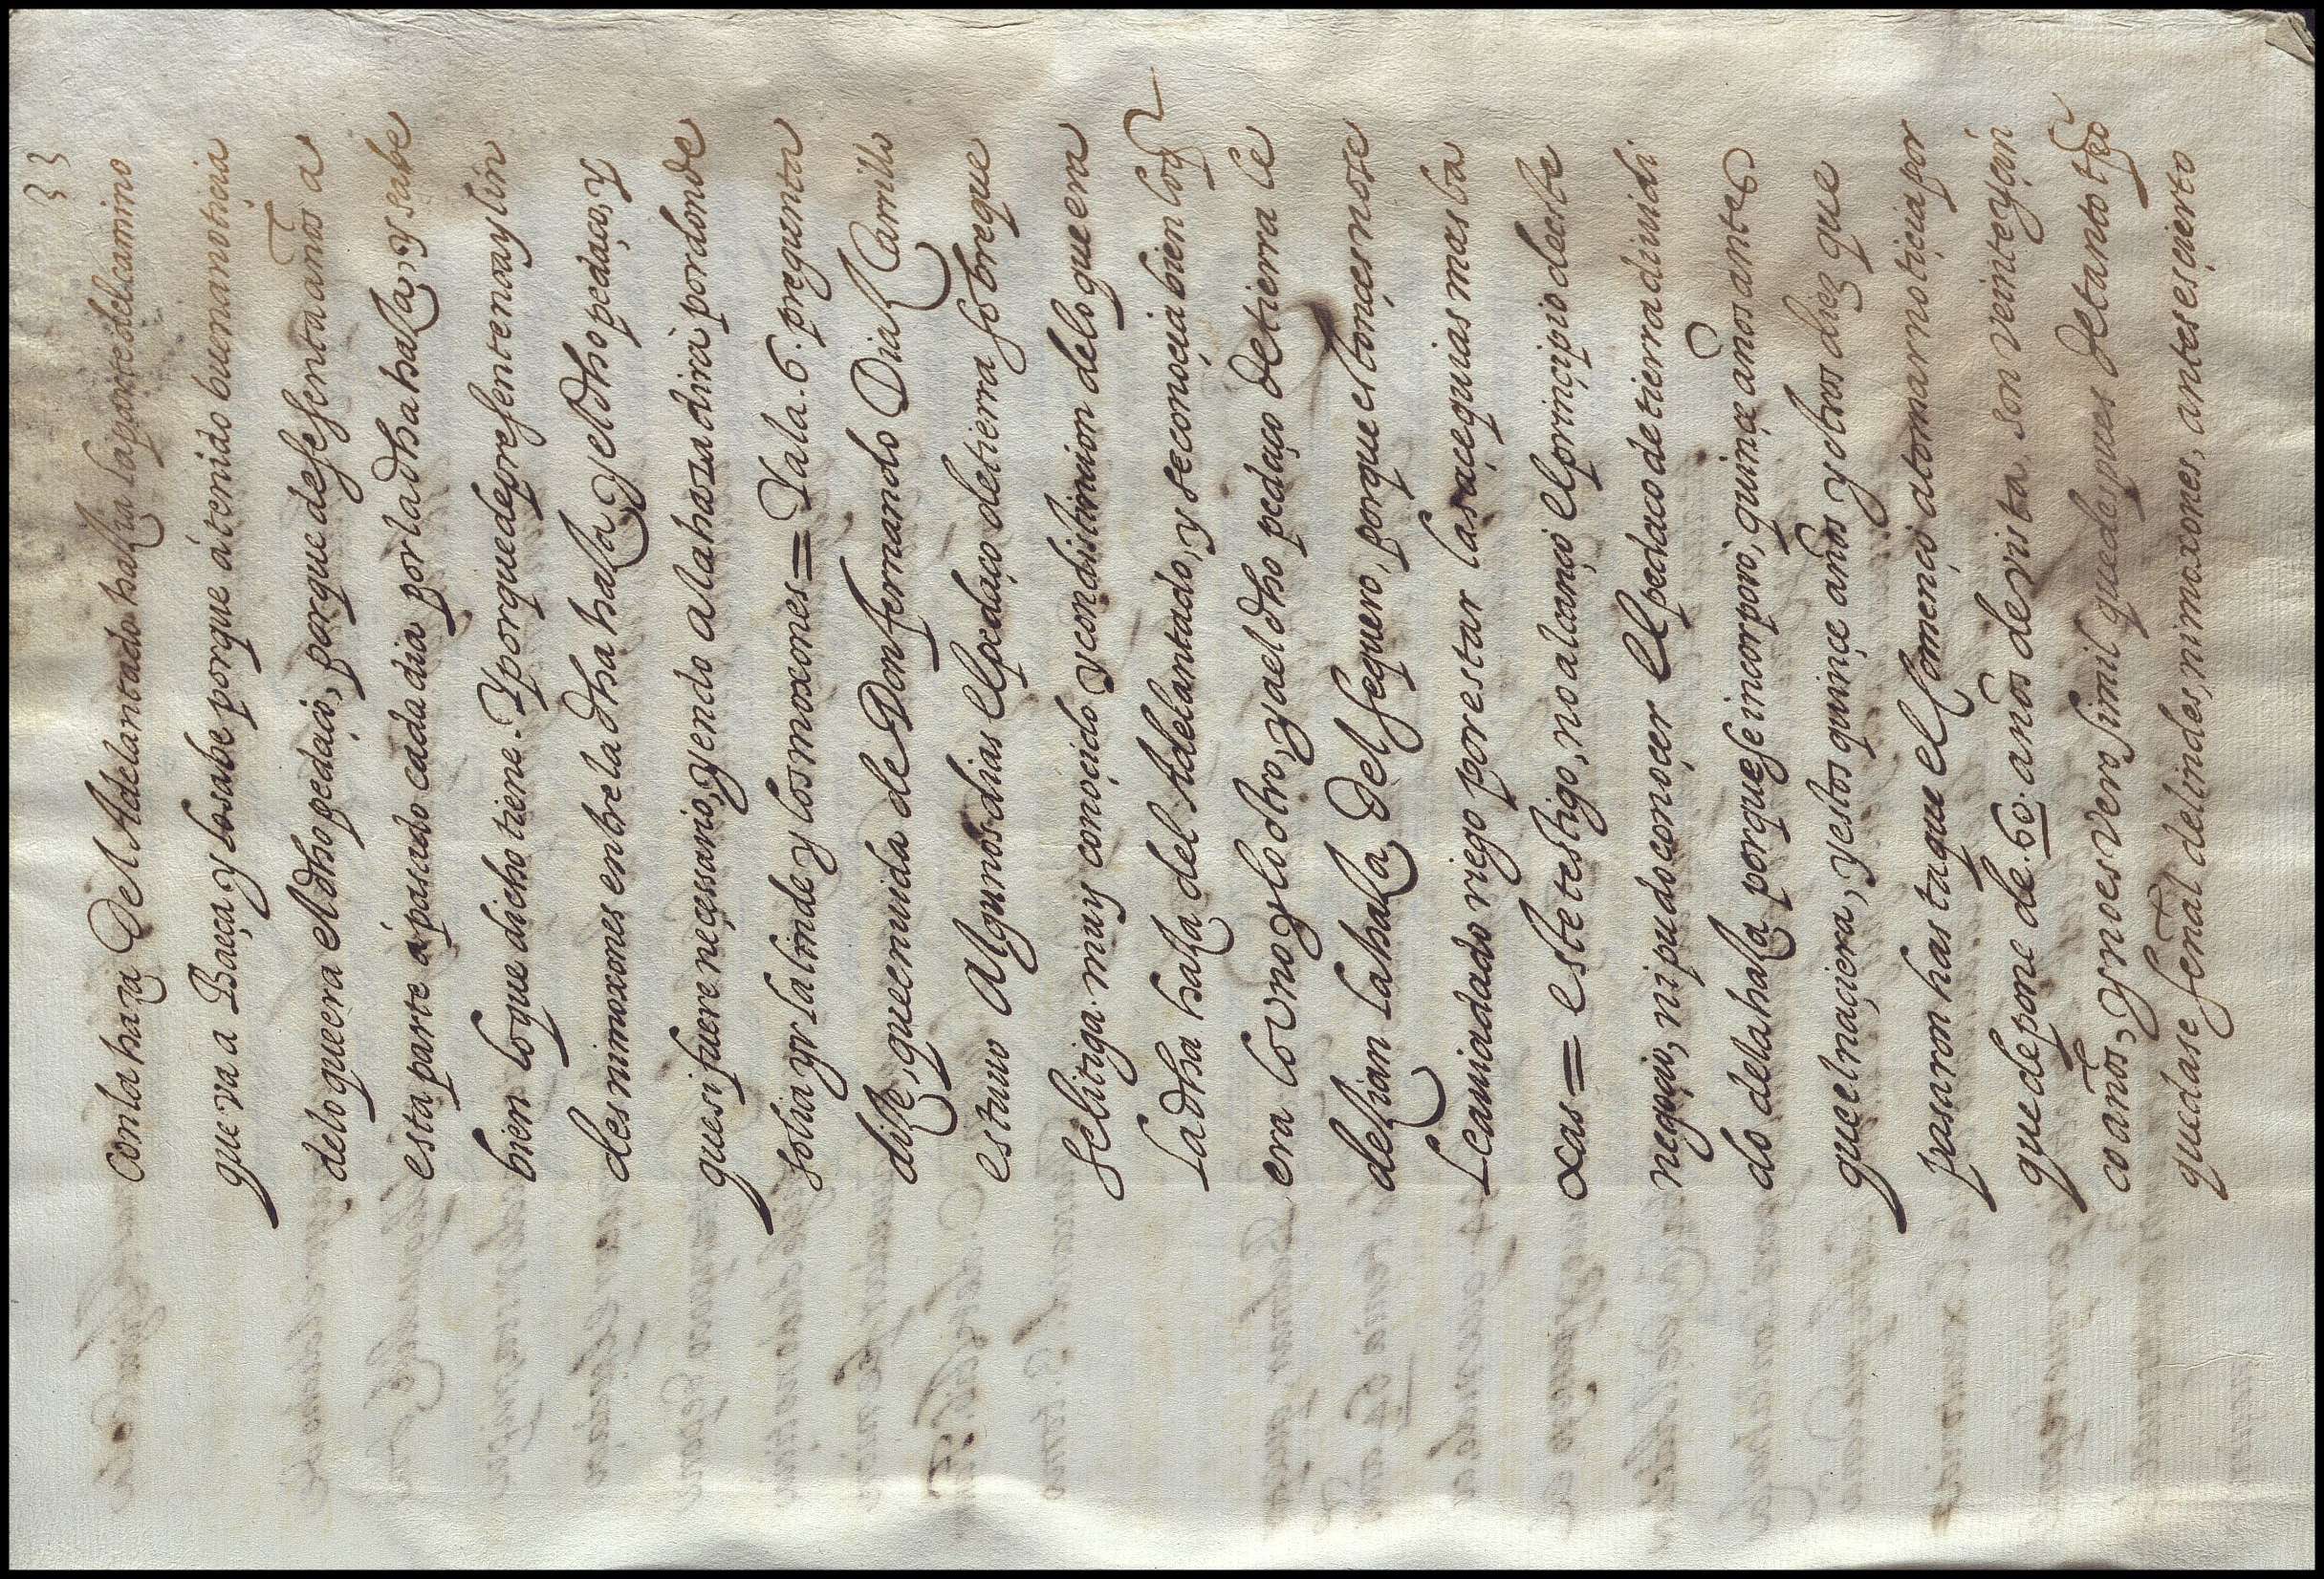 33
con la haza Del Adelantado hazia la parte del camino
que va a Baeça y lo sabe porque á tenido buena notiçia
de lo que era el dho pedaço, porque de sesenta años a
esta parte á pasado cada dia por la dha haza, y sabe
bien lo que dicho tiene. Y porque de presente no ay lin
des ni moxones entre la dha haza y el dho pedaço, y
que si fuere neçessario, yendo a la haza dira por donde
solia yr la linde y los moxones = Y a la .6. pregunta
dize, que en vida de Don fernando Diaz Carrillo
estuvo algunos dias el pedaço de tierra sobre que
se litiga. muy conoçido y con distinçion de lo que era
la dha haza del Adelantado, y se conoçia bien lo q
era lo vno y lo otro, y a el dho pedaço de tierra le
dezian la haza Del sequero, porque estonçes no se
le auia dado riego por estar las açequias mas ba
xas = este testigo, no alcançó el prinçipio deste
negoçio, ni pudo conoçer el pedaço de tierra diuidi
do de la haza porque se incorporo, quinçe años antes
que el naçiera, y estos quinçe años y otros diez que
pasaron hasta que el Començó a tomar notiçia por
que depone de .60. años de vista, son veinte y çin
co años, y no es verosimil que despues de tanto tpo
quedase señal de lindes, ni moxones, antes es çierto